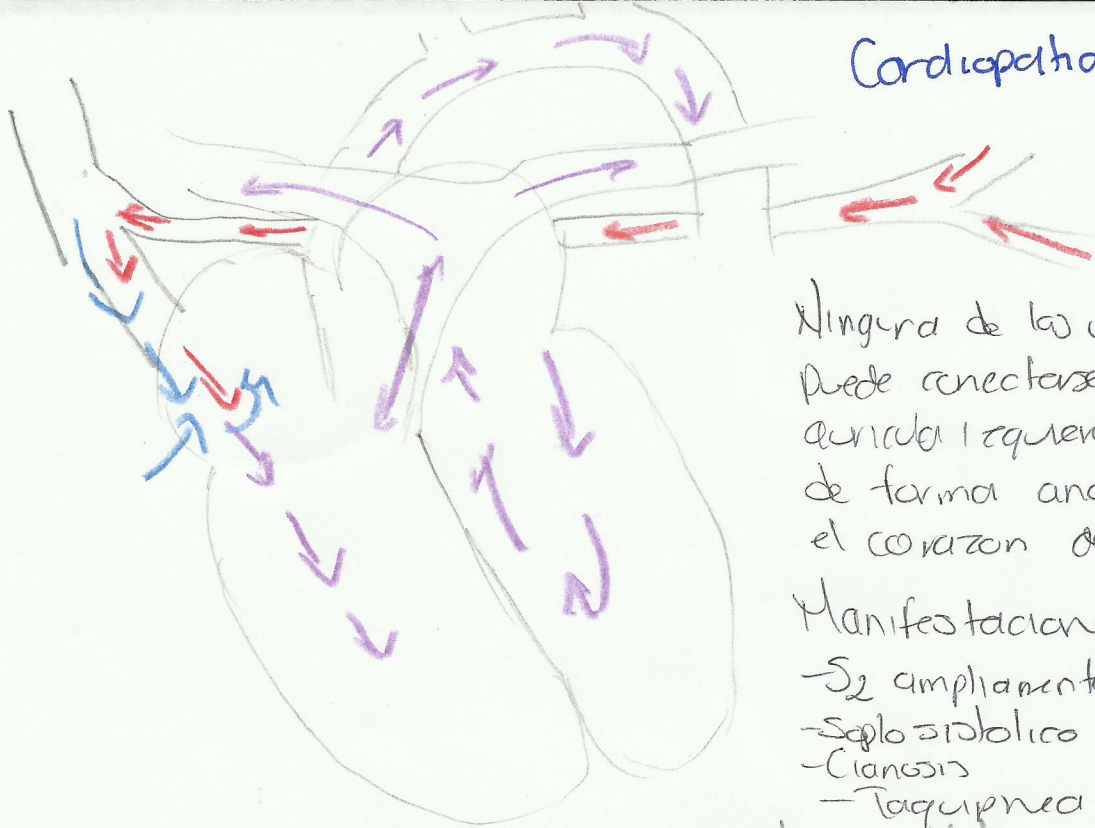 Cardiopatia
Ningura de las v
puede conectarse
auricula izquier
de forma ano
el corazon de
Manifestacion
-S2 ampliamente
-Soplo sistolico
-Cianosis
-Taquipnea